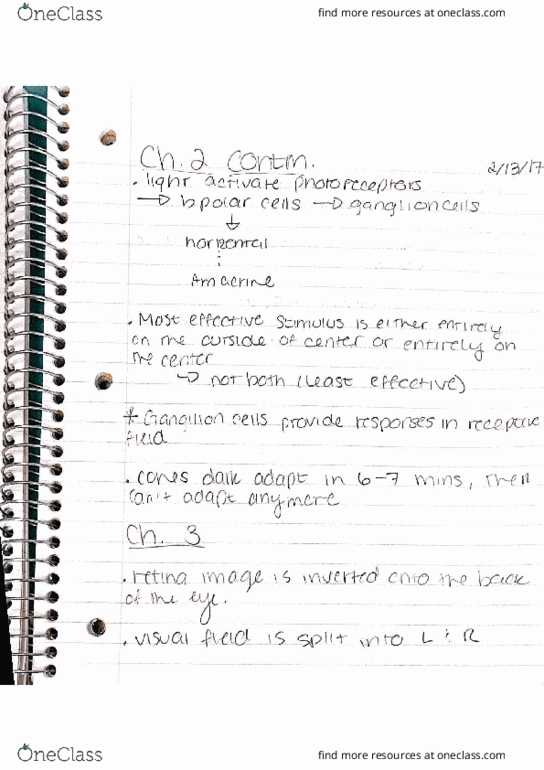 OneClass
find more resources at oneclass.com
Ch. 2 contn.
2/13/17
• light activate photoreceptors
→ bipolar cells → ganglion cells
↓
horizontal
⋮
Amacrine
• Most effective stimulus is either entirely
on the outside of center or entirely on
the center
↳ not both (least effective)
* Ganglion cells provide responses in receptive
field
• cones dark adapt in 6-7 mins, then
can't adapt anymore
Ch. 3
• retina image is inverted onto the back
of the eye.
• visual field is split into L & R
OneClass
find more resources at oneclass.com